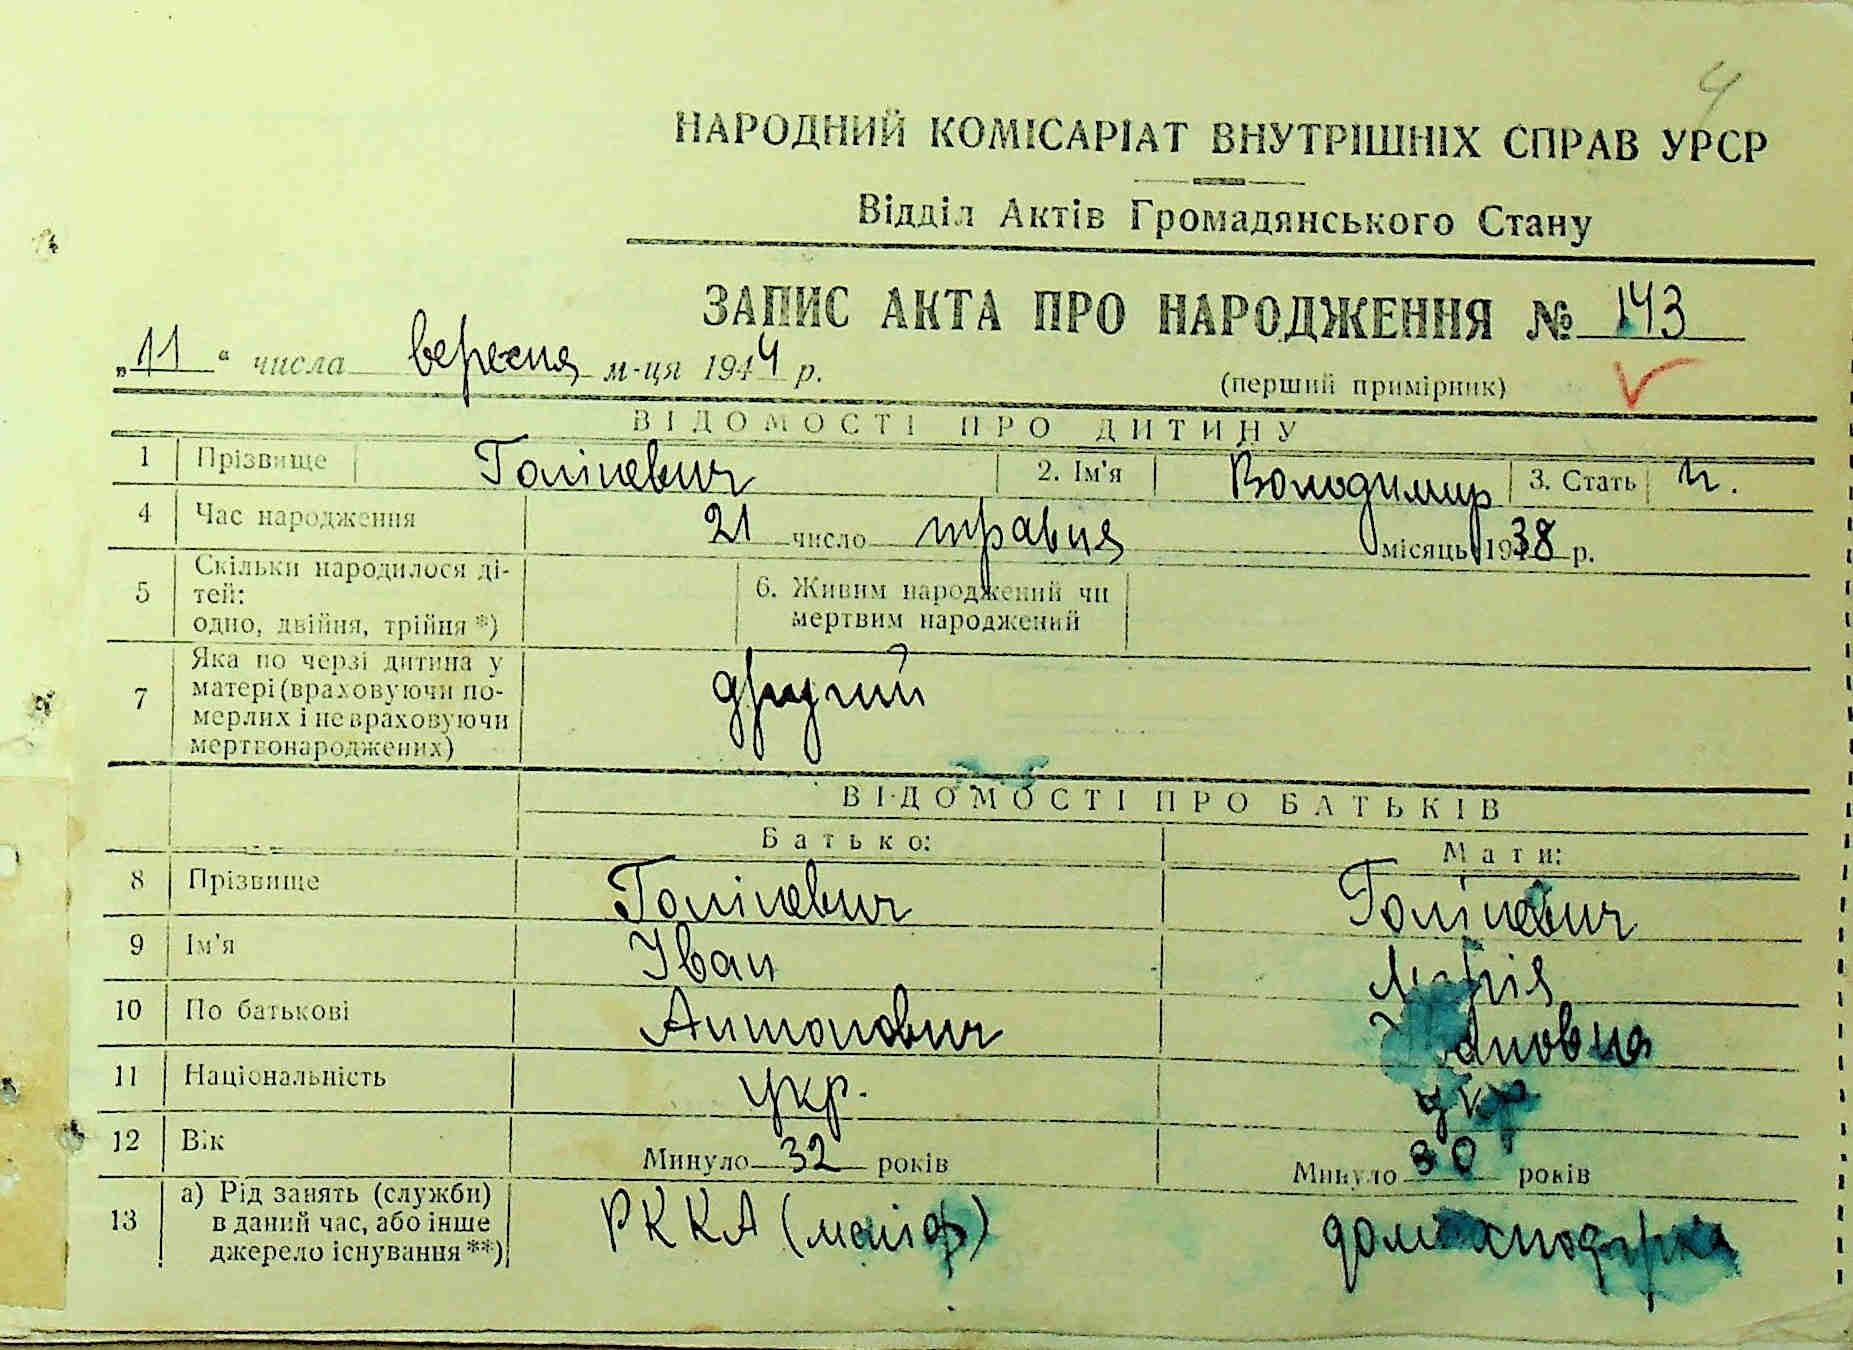 4
НАРОДНИЙ КОМІСАРІАТ ВНУТРІШНІХ СПРАВ УРСР
Відділ Актів Громадянського Стану
ЗАПИС АКТА ПРО НАРОДЖЕННЯ № 143
„11“ числа вересня м-ця 1944 р.
(перший примірник)
ВІДОМОСТІ ПРО ДИТИНУ
1 Прізвище Голіневич 2. Ім'я Володимир 3. Стать ч.
4 Час народження 21 число травня місяць 1938 р.
5 Скільки народилося ді-
тей:
одно, двійня, трійня *)
6. Живим народжений чи
мертвим народжений
7 Яка по черзі дитина у
матері (враховуючи по-
мерлих і не враховуючи
мертвонароджених)
другий
ВІДОМОСТІ ПРО БАТЬКІВ
Батько: Мати:
8 Прізвище Голіневич Голіневич
9 Ім'я Іван Марія
10 По батькові Антонович Івановна
11 Національність укр. укр
12 Вік Минуло 32 років Минуло 30 років
13 а) Рід занять (служби)
в даний час, або інше
джерело існування **)
РККА (майор) домохподарка